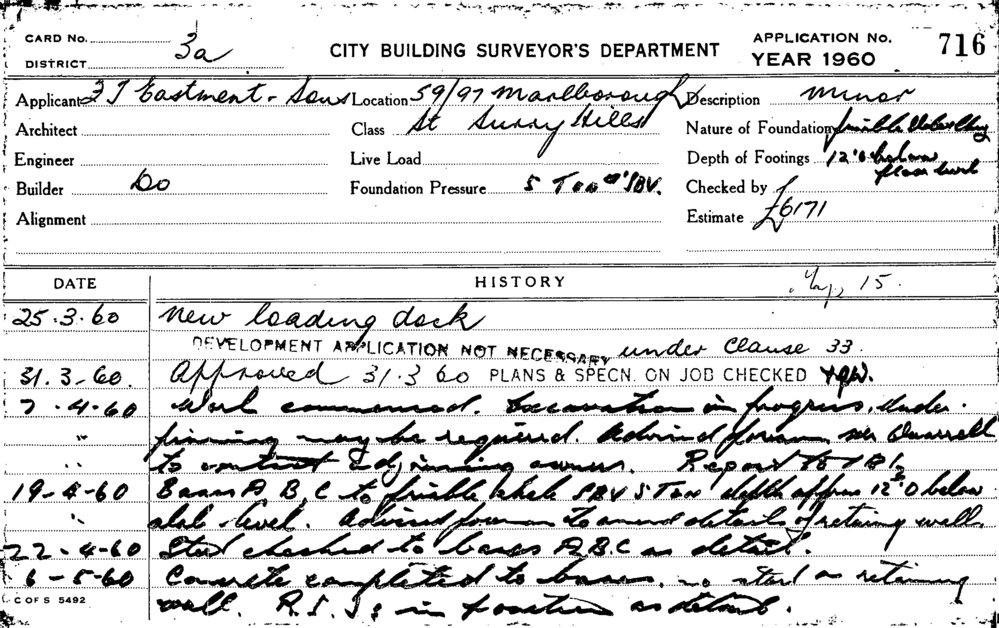 CARD No. 3a
DISTRICT
CITY BUILDING SURVEYOR'S DEPARTMENT
APPLICATION No. 716
YEAR 1960
Applicant F J Eastment - Sons Location 59/97 Marlborough Description Minor
Architect Class St Surry Hills Nature of Foundation friable
Engineer Live Load Depth of Footings 12'0 below floor level
Builder Do Foundation Pressure 5 Ton SBV. Checked by
Alignment Estimate £6171
DATE HISTORY 15.
25.3.60 New loading dock
DEVELOPMENT APPLICATION NOT NECESSARY under Clause 33.
31.3-60. Approved 31.3.60 PLANS & SPECN. ON JOB CHECKED
7-4-60 Work commenced. Excavation in progress, Under-
" pinning may be required. Advised foreman Mr
" to contact adjoining owners. Report to
19-4-60 Bases A, B, C to friable shale SBV 5 Ton depth approx 12'0 below
" slab level. Advised foreman to amend details of retaining wall.
22-4-60 Steel checked to bases A.B.C as detail.
6-5-60 Concrete completed to bases, no start on retaining
wall. R.S.Js in position as detail.
C OF S 5492